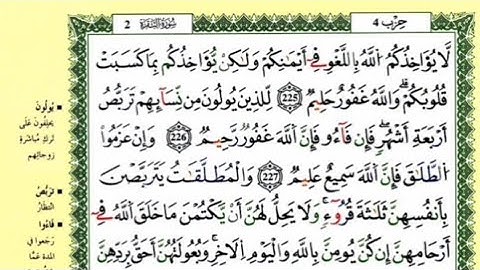 حِزْب 4
سُورَةُ البَقَرَة 2
لَّا يُؤَاخِذُكُمُ ٱللَّهُ بِٱللَّغْوِ فِىٓ أَيْمَٰنِكُمْ وَلَٰكِن يُؤَاخِذُكُم بِمَا كَسَبَتْ
قُلُوبُكُمْ وَٱللَّهُ غَفُورٌ حَلِيمٌ 225 لِّلَّذِينَ يُولُونَ مِن نِّسَآئِهِمْ تَرَبُّصُ
أَرْبَعَةِ أَشْهُرٍ فَإِن فَآءُو فَإِنَّ ٱللَّهَ غَفُورٌ رَّحِيمٌ 226 وَإِنْ عَزَمُوا۟
ٱلطَّلَٰقَ فَإِنَّ ٱللَّهَ سَمِيعٌ عَلِيمٌ 227 وَٱلْمُطَلَّقَٰتُ يَتَرَبَّصْنَ
بِأَنفُسِهِنَّ ثَلَٰثَةَ قُرُوٓءٍ وَلَا يَحِلُّ لَهُنَّ أَن يَكْتُمْنَ مَا خَلَقَ ٱللَّهُ فِىٓ
أَرْحَامِهِنَّ إِن كُنَّ يُؤْمِنَّ بِٱللَّهِ وَٱلْيَوْمِ ٱلْءَاخِرِ وَبُعُولَتُهُنَّ أَحَقُّ بِرَدِّهِنَّ
يُولُونَ
يَحلِفُونَ عَلَى
تَركِ مُبَاشَرَةِ
زَوجَاتِهِم
تَرَبُّصُ
انتِظَارُ
فَاءُوا
رَجَعُوا فِي
المدة عَمَّا